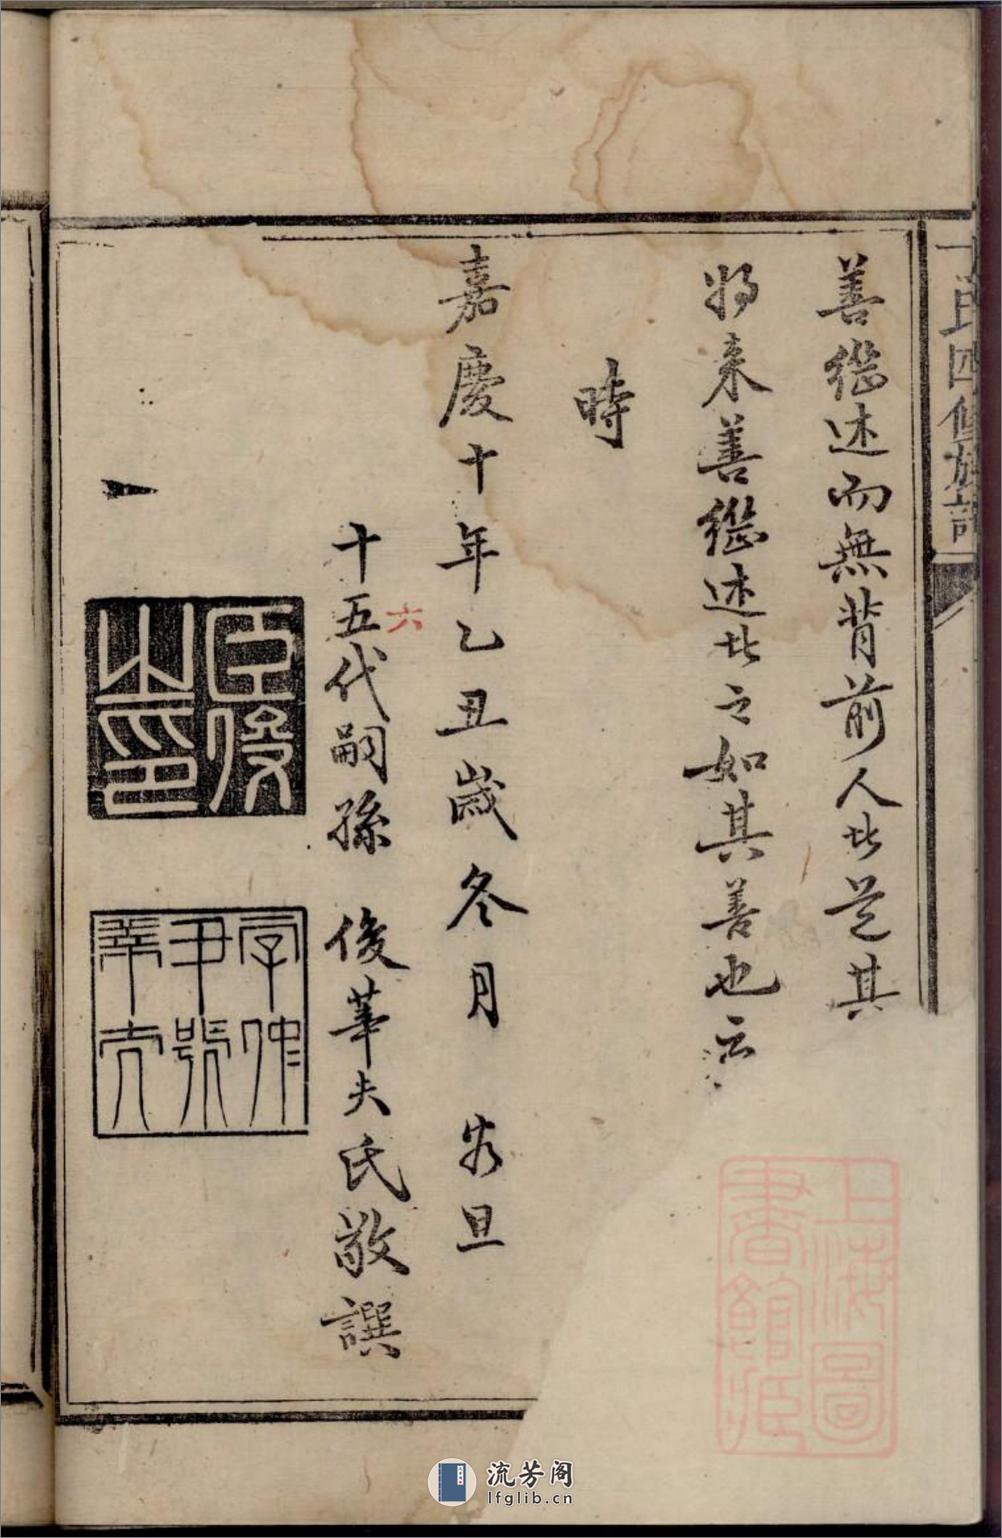 氏四修族
善繼述而無背前人此是其
将来善繼述此之如其善也云
時
嘉慶十年乙丑歲冬月 谷旦
六
十五代嗣孫 俊華夫氏敬譔
臣俊
之印
字伸
尹號
華夫
上海圖
書館藏
流芳阁
lfglib.cn